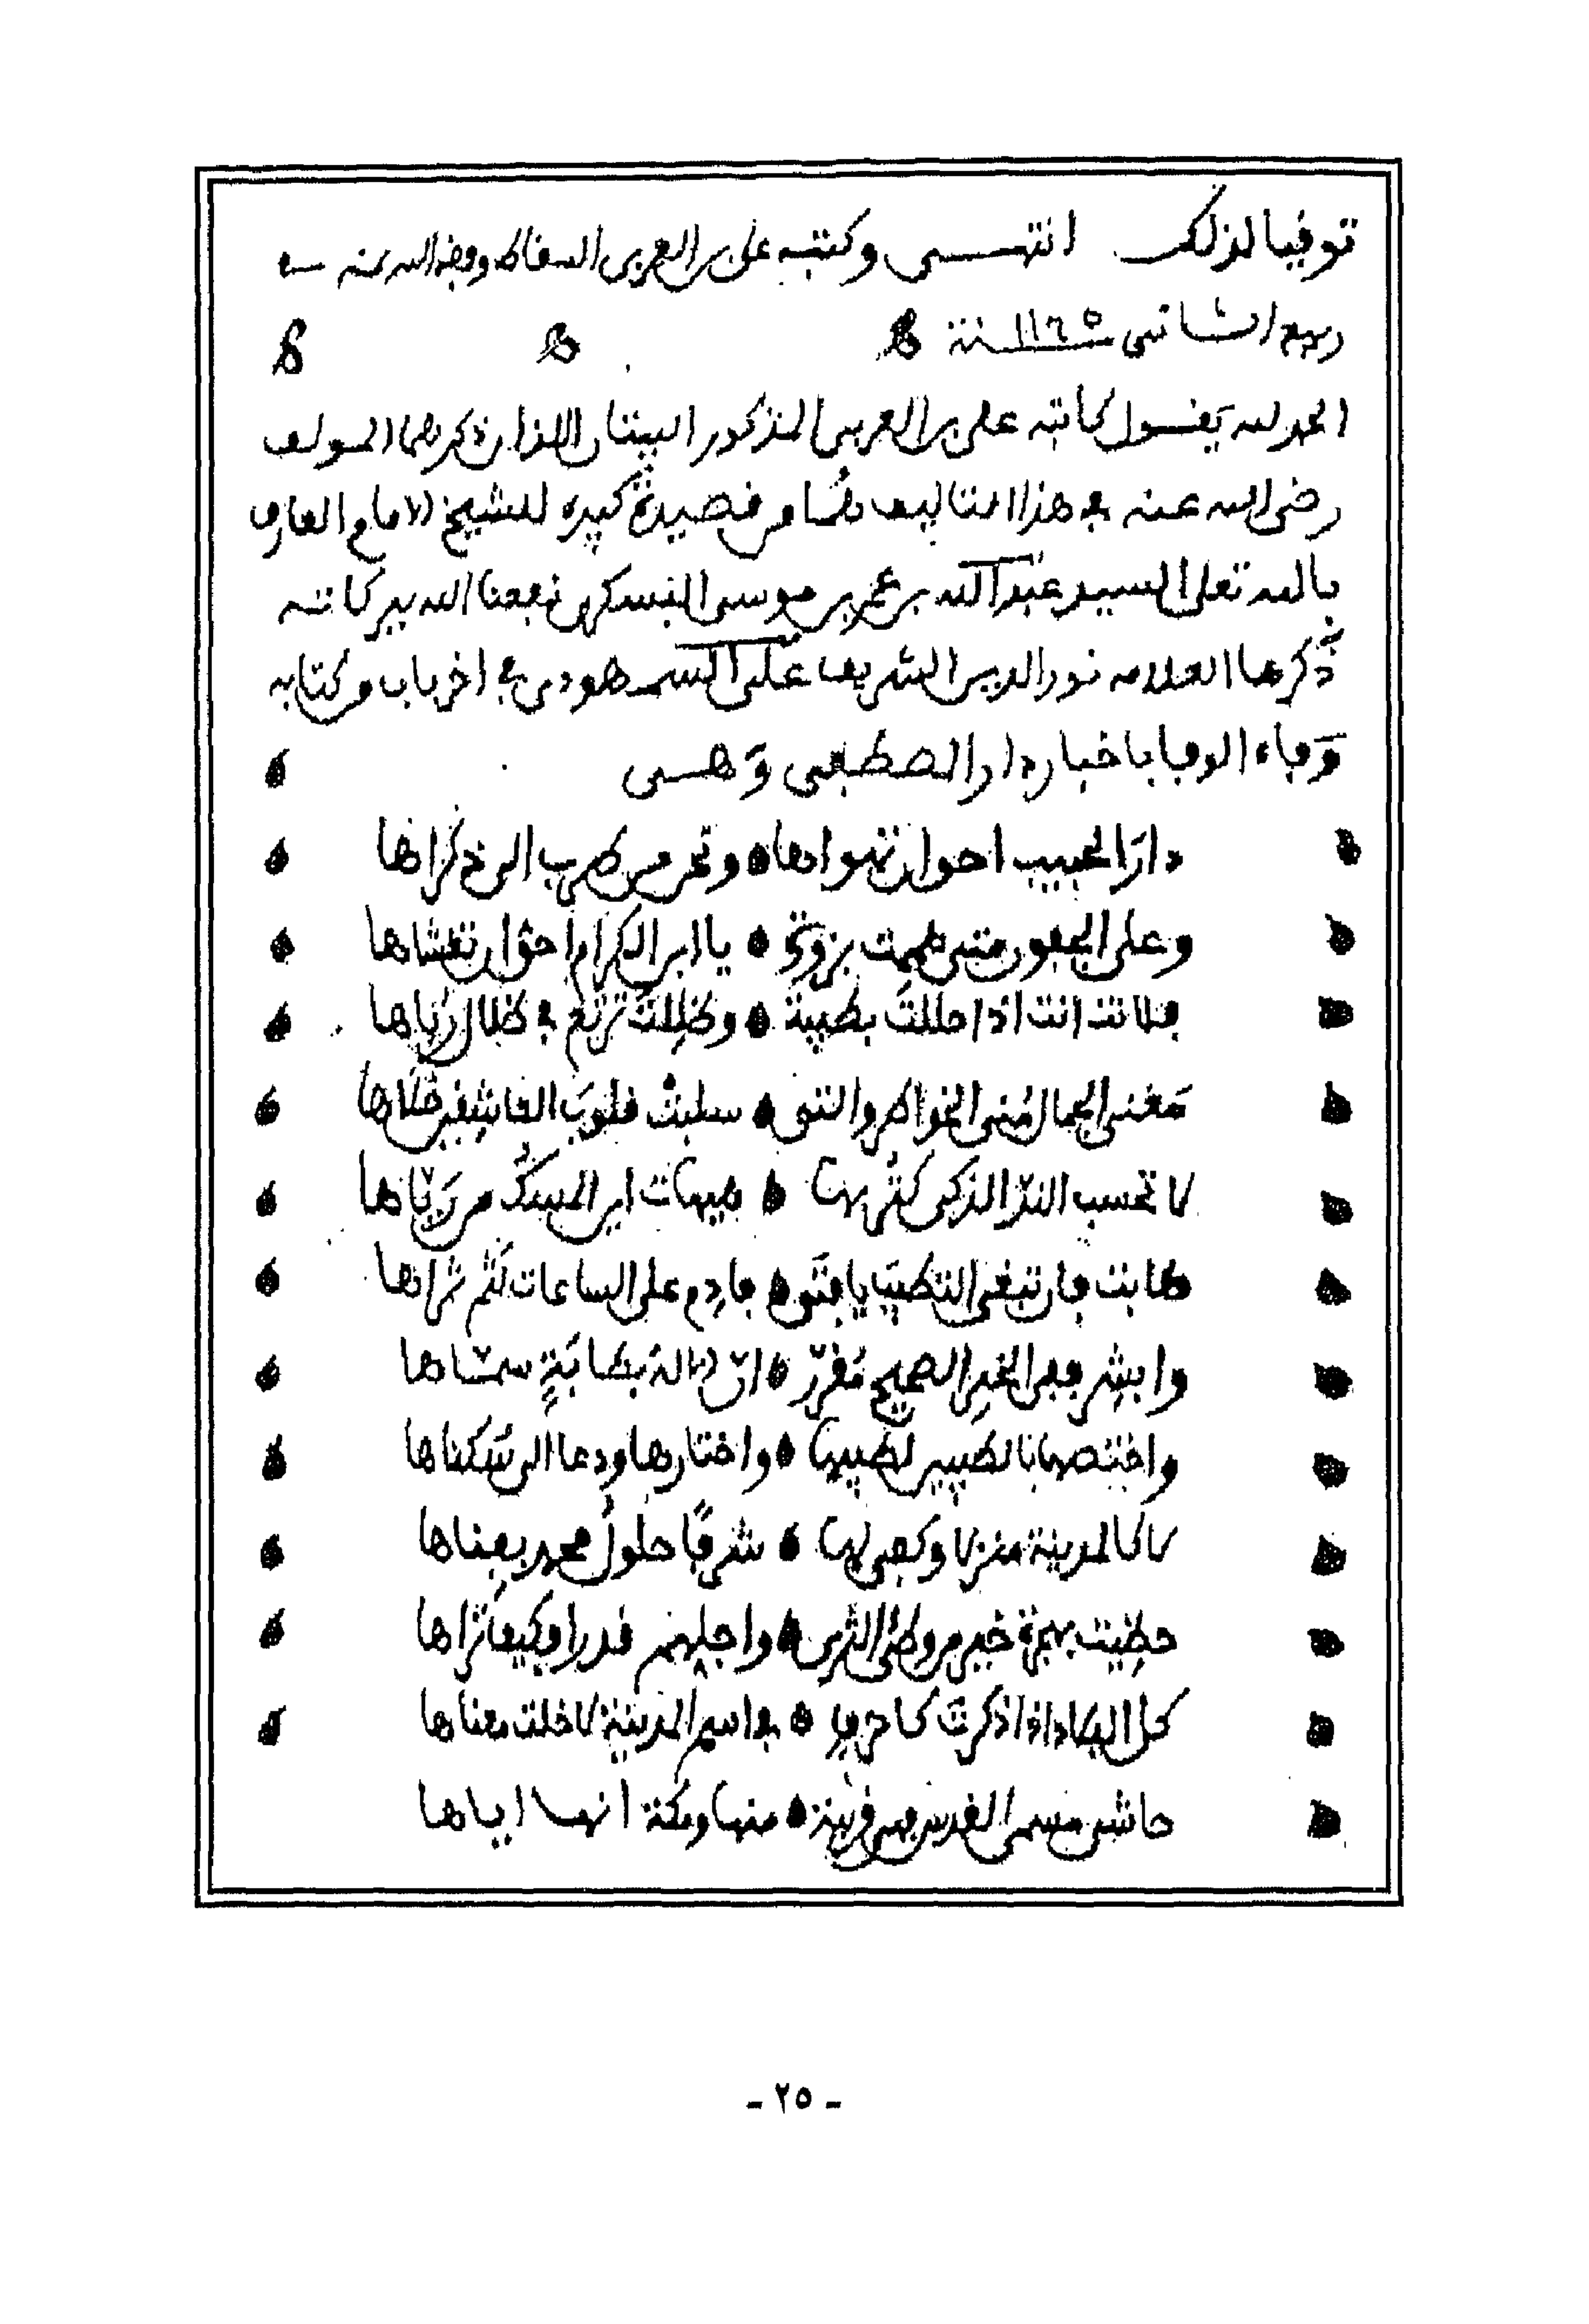 توفيا لذلك انتهى وكتبه علي بن العربي السقاط وفقه الله بمنه
ربيع الثاني ١١٦٥ سنة
الحمد لله يقول كاتبه علي بن العربي المذكور البيتان اللذان ذكرهما المولف
رضي الله عنه في هذا التاليف هما من قصيدة كبيره للشيخ الامام العارف
بالله تعلى السيد عبد الله بن عمر بن موسى البسكري نفعنا الله ببركاته
ذكرها العلامه نور الدين الشريف علي السمهودي في اخر باب من كتابه
وفاء الوفا باخبار دار المصطفى وهي
دار الحبيب احق ان تهواها وتحن من طرب الى ذكراها
وعلى الجفون متى هممت بزورة يا ابن الكرام احق ان تغشاها
فلانت انت اذا حللت بطيبة وظللت ترتع في ظلال رباها
مغنى الجمال منى الخواطر والتي سلبت قلوب العاشقين حلاها
لا تحسب المسك الذكي كتربها هيهات اين المسك من رياها
طابت فان تبغي التطيب يا فتى فادم على الساعات لثم ثراها
وابشر ففي الخبر الصحيح مقرر ان الاله بطابة سماها
واختصها بالطيبين لطيبها واختارها ودعا الى سكناها
لا كالمدينة منزلا وكفى لها شرفا حلول محمد بفناها
حظيت بهجرة خير من وطئ الثرى واجلهم قدرا وكيف تراها
كل البلاد اذا ذكرت كاحرف في اسم المدينة لا خلت معناها
حاشى مسمى القدس فهي قريبة منها ومكة انها اياها
- ٢٥ -